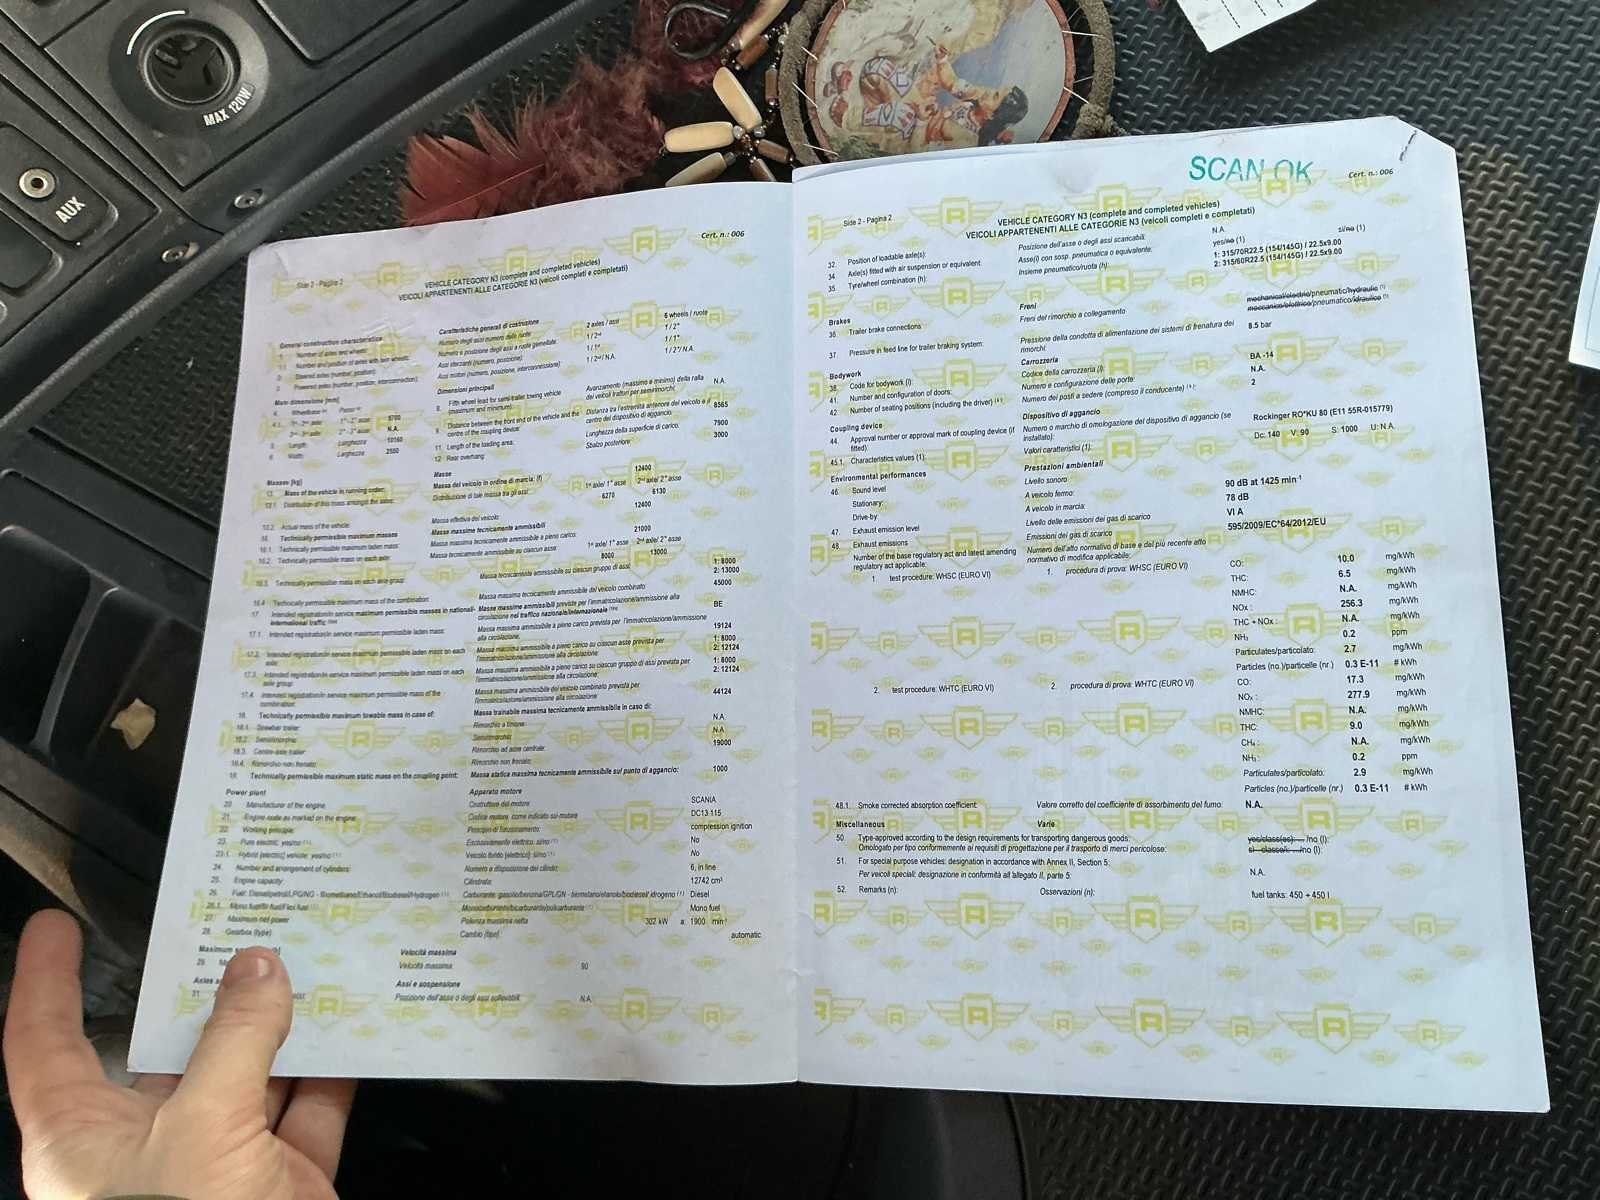 MAX 120W
AUX
Cert. n.: 006
Side 2 - Pagina 2
VEHICLE CATEGORY N3 (complete and completed vehicles)
VEICOLI APPARTENENTI ALLE CATEGORIE N3 (veicoli completi e completati)
General construction characteristics Caratteristiche generali di costruzione 2 axles / assi 6 wheels / ruote
1. Number of axles and wheels: Numero degli assi numero delle ruote:
1.1. Number and position of axles with twin wheels: Numero e posizione degli assi a ruote gemellate:
2. Steered axles (number, position): Assi sterzanti (numero, posizione):
3. Powered axles (number, position, interconnection): Assi motori (numero, posizione, interconnessione):
Main dimensions [mm] Dimensioni principali
8. Fifth wheel lead for semi-trailer towing vehicle (maximum and minimum): Avanzamento (massimo e minimo) della ralla dei veicoli trattori per semirimorchi: N.A.
9. Distance between the front end of the vehicle and the centre of the coupling device: Distanza tra l'estremità anteriore del veicolo e il centro del dispositivo di aggancio: 8565
5. Length: Lunghezza 10160 11. Length of the loading area: Lunghezza della superficie di carico: 7900
6. Width: Larghezza 2550 12. Rear overhang: Sbalzo posteriore: 3000
Masses [kg] Masse
13. Mass of the vehicle in running order: Massa del veicolo in ordine di marcia: 12400
13.1. Distribution of this mass amongst the axles: Distribuzione di tale massa tra gli assi: 1st axle/ 1° asse 2nd axle/ 2° asse
6270 6130
13.2. Actual mass of the vehicle: Massa effettiva del veicolo: 12400
16. Technically permissible maximum masses Masse massime tecnicamente ammissibili
16.1. Technically permissible maximum laden mass: Massa massima tecnicamente ammissibile a pieno carico: 21000
16.2. Technically permissible mass on each axle: Massa tecnicamente ammissibile su ciascun asse: 1st axle/ 1° asse 2nd axle/ 2° asse
8000 13000
16.3. Technically permissible mass on each axle group: Massa tecnicamente ammissibile su ciascun gruppo di assi: 1: 8000
2: 13000
16.4 Technically permissible maximum mass of the combination: Massa massima tecnicamente ammissibile del veicolo combinato: 45000
17. Intended registration/in service maximum permissible masses in national/international traffic Masse massime ammissibili previste per l'immatricolazione/ammissione alla circolazione nel traffico nazionale/internazionale BE
17.1. Intended registration/in service maximum permissible laden mass: Massa massima ammissibile a pieno carico prevista per l'immatricolazione/ammissione alla circolazione: 19124
17.2. Intended registration/in service maximum permissible laden mass on each axle: Massa massima ammissibile a pieno carico su ciascun asse prevista per l'immatricolazione/ammissione alla circolazione: 1: 8000
2: 12124
17.3. Intended registration/in service maximum permissible laden mass on each axle group: Massa massima ammissibile a pieno carico su ciascun gruppo di assi prevista per l'immatricolazione/ammissione alla circolazione: 1: 8000
2: 12124
17.4. Intended registration/in service maximum permissible mass of the combination: Massa massima ammissibile del veicolo combinato prevista per l'immatricolazione/ammissione alla circolazione: 44124
18. Technically permissible maximum towable mass in case of: Massa trainabile massima tecnicamente ammissibile in caso di:
18.1. Drawbar trailer: Rimorchio a timone: N.A.
18.2. Semirimorchio: Semirimorchio: N.A.
18.3. Centre-axle trailer: Rimorchio ad asse centrale: 19000
18.4. Rimorchio non frenato: Rimorchio non frenato:
19. Technically permissible maximum static mass on the coupling point: Massa statica massima tecnicamente ammissibile sul punto di aggancio: 1000
Power plant Apparato motore
20. Manufacturer of the engine: Costruttore del motore: SCANIA
21. Engine code as marked on the engine: Codice motore, come indicato sul motore: DC13 115
22. Working principle: Principio di funzionamento: compression ignition
23. Pure electric: yes/no (1) Esclusivamente elettrico: si/no (1) No
23.1. Hybrid [electric] vehicle: yes/no (1) Veicolo ibrido [elettrico]: si/no (1) No
24. Number and arrangement of cylinders: Numero e disposizione dei cilindri: 6, in line
25. Engine capacity: Cilindrata: 12742 cm³
26. Fuel: Diesel/petrol/LPG/NG - Biomethane/Ethanol/Biodiesel/Hydrogen (1) Carburante: gasolio/benzina/GPL/GN - biometano/etanolo/biodiesel/ idrogeno (1) Diesel
26.1. Mono fuel/Bi fuel/Flex fuel (1) Monocarburante/bicarburante/policarburante (1) Mono fuel
27. Maximum net power Potenza massima netta 302 kW a: 1900 min⁻¹
28. Gearbox (type): Cambio (tipo): automatic
Maximum Velocità massima
29. Velocità massima: 90
Axles Assi e sospensione
31. Posizione dell'asse o degli assi sollevabili: N.A.
SCAN OK
Cert. n.: 006
Side 2 - Pagina 2
VEHICLE CATEGORY N3 (complete and completed vehicles)
VEICOLI APPARTENENTI ALLE CATEGORIE N3 (veicoli completi e completati)
32. Position of loadable axle(s): Posizione dell'asse o degli assi scaricabili: N.A.
34. Axle(s) fitted with air suspension or equivalent: Asse(i) con sosp. pneumatica o equivalente: yes/no (1) si/no (1)
35. Tyre/wheel combination (h): Insieme pneumatico/ruota (h): 1: 315/70R22.5 (154/145G) / 22.5x9.00
2: 315/60R22.5 (154/145G) / 22.5x9.00
Brakes Freni
36. Trailer brake connections Freni del rimorchio a collegamento mechanical/electric/pneumatic/hydraulic (1)
meccanico/elettrico/pneumatico/idraulico (1)
37. Pressure in feed line for trailer braking system: Pressione della condotta di alimentazione dei sistemi di frenatura dei rimorchi: 8.5 bar
Bodywork Carrozzeria
38. Code for bodywork (i): Codice della carrozzeria (i): BA -14
41. Number and configuration of doors: Numero e configurazione delle porte: N.A.
42 Number of seating positions (including the driver) Numero dei posti a sedere (compreso il conducente) 2
Coupling device Dispositivo di aggancio
44. Approval number or approval mark of coupling device (if fitted): Numero o marchio di omologazione del dispositivo di aggancio (se installato): Rockinger RO*KU 80 (E11 55R-015779)
45.1. Characteristics values (1): Valori caratteristici (1): Dc: 140 V: 90 S: 1000 U: N.A.
Environmental performances Prestazioni ambientali
46. Sound level Livello sonoro
Stationary: A veicolo fermo: 90 dB at 1425 min⁻¹
Drive-by: A veicolo in marcia: 78 dB
47. Exhaust emission level Livello delle emissioni dei gas di scarico VI A
48. Exhaust emissions Emissioni dei gas di scarico
Number of the base regulatory act and latest amending regulatory act applicable: Numero dell'atto normativo di base e del più recente atto normativo di modifica applicabile: 595/2009/EC*64/2012/EU
1. test procedure: WHSC (EURO VI) 1. procedura di prova: WHSC (EURO VI)
CO: 10.0 mg/kWh
THC: 6.5 mg/kWh
NMHC: N.A. mg/kWh
NOx : 256.3 mg/kWh
THC + NOx : N.A. mg/kWh
NH₃ 0.2 ppm
Particulates/particolato: 2.7 mg/kWh
Particles (no.)/particelle (nr.) 0.3 E-11 # kWh
2. test procedure: WHTC (EURO VI) 2. procedura di prova: WHTC (EURO VI)
CO: 17.3 mg/kWh
NOx : 277.9 mg/kWh
NMHC: N.A. mg/kWh
THC: 9.0 mg/kWh
CH₄ : N.A. mg/kWh
NH₃ : 0.2 ppm
Particulates/particolato: 2.9 mg/kWh
Particles (no.)/particelle (nr.) 0.3 E-11 # kWh
48.1. Smoke corrected absorption coefficient: Valore corretto del coefficiente di assorbimento del fumo: N.A.
Miscellaneous Varie
50. Type-approved according to the design requirements for transporting dangerous goods: yes/class(es): ... /no (l):
Omologato per tipo conformemente ai requisiti di progettazione per il trasporto di merci pericolose: si - classe/i: .../no (l):
51. For special purpose vehicles: designation in accordance with Annex II, Section 5:
Per veicoli speciali: designazione in conformità all'allegato II, parte 5: N.A.
52. Remarks (n): Osservazioni (n): fuel tanks: 450 + 450 l